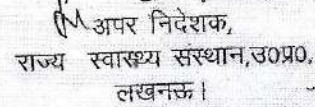 अपर निदेशक,
राज्य स्वास्थ्य संस्थान,उ०प्र०,
लखनऊ।